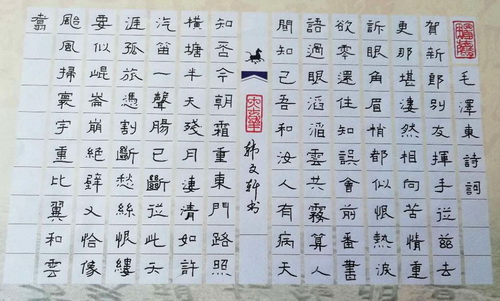 毛澤東詩詞
賀新郎別友揮手從茲去
更那堪淒然相向苦情重
訴眼角眉悄都似恨熱淚
欲零還住知誤會前番書
語過眼滔滔雲共霧算人
間知己吾和汝人有病天
知否今朝霜重東門路照
橫塘半天殘月清如許
汽笛一聲腸已斷從此天
涯孤旅憑割斷愁絲恨縷
要似崐崙崩絕壁又恰像
颱風掃寰宇重比翼和雲
翥
韩文軒书